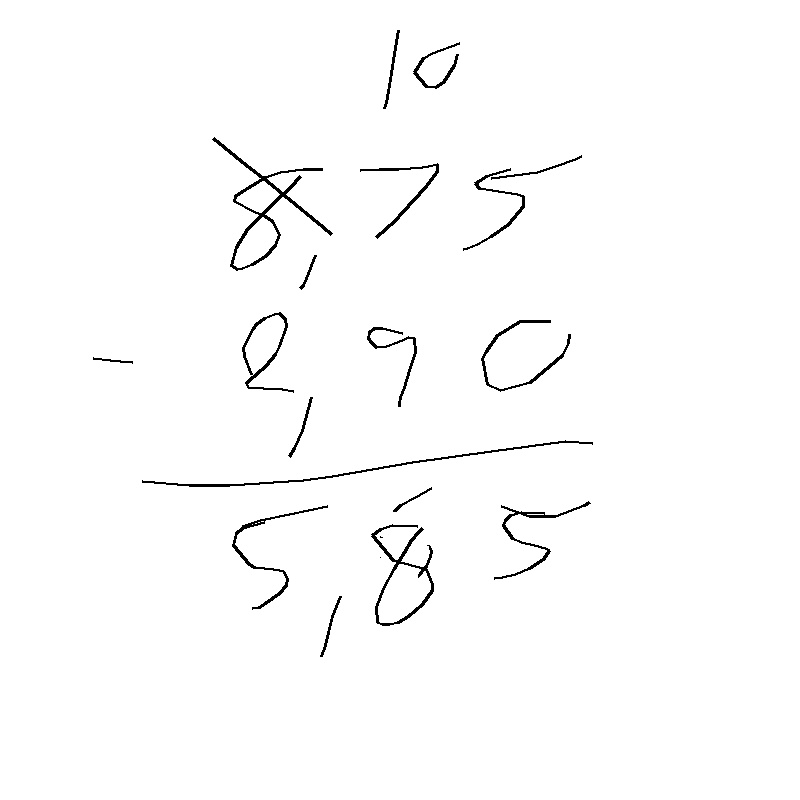 10
8,75
- 2,90
5,85